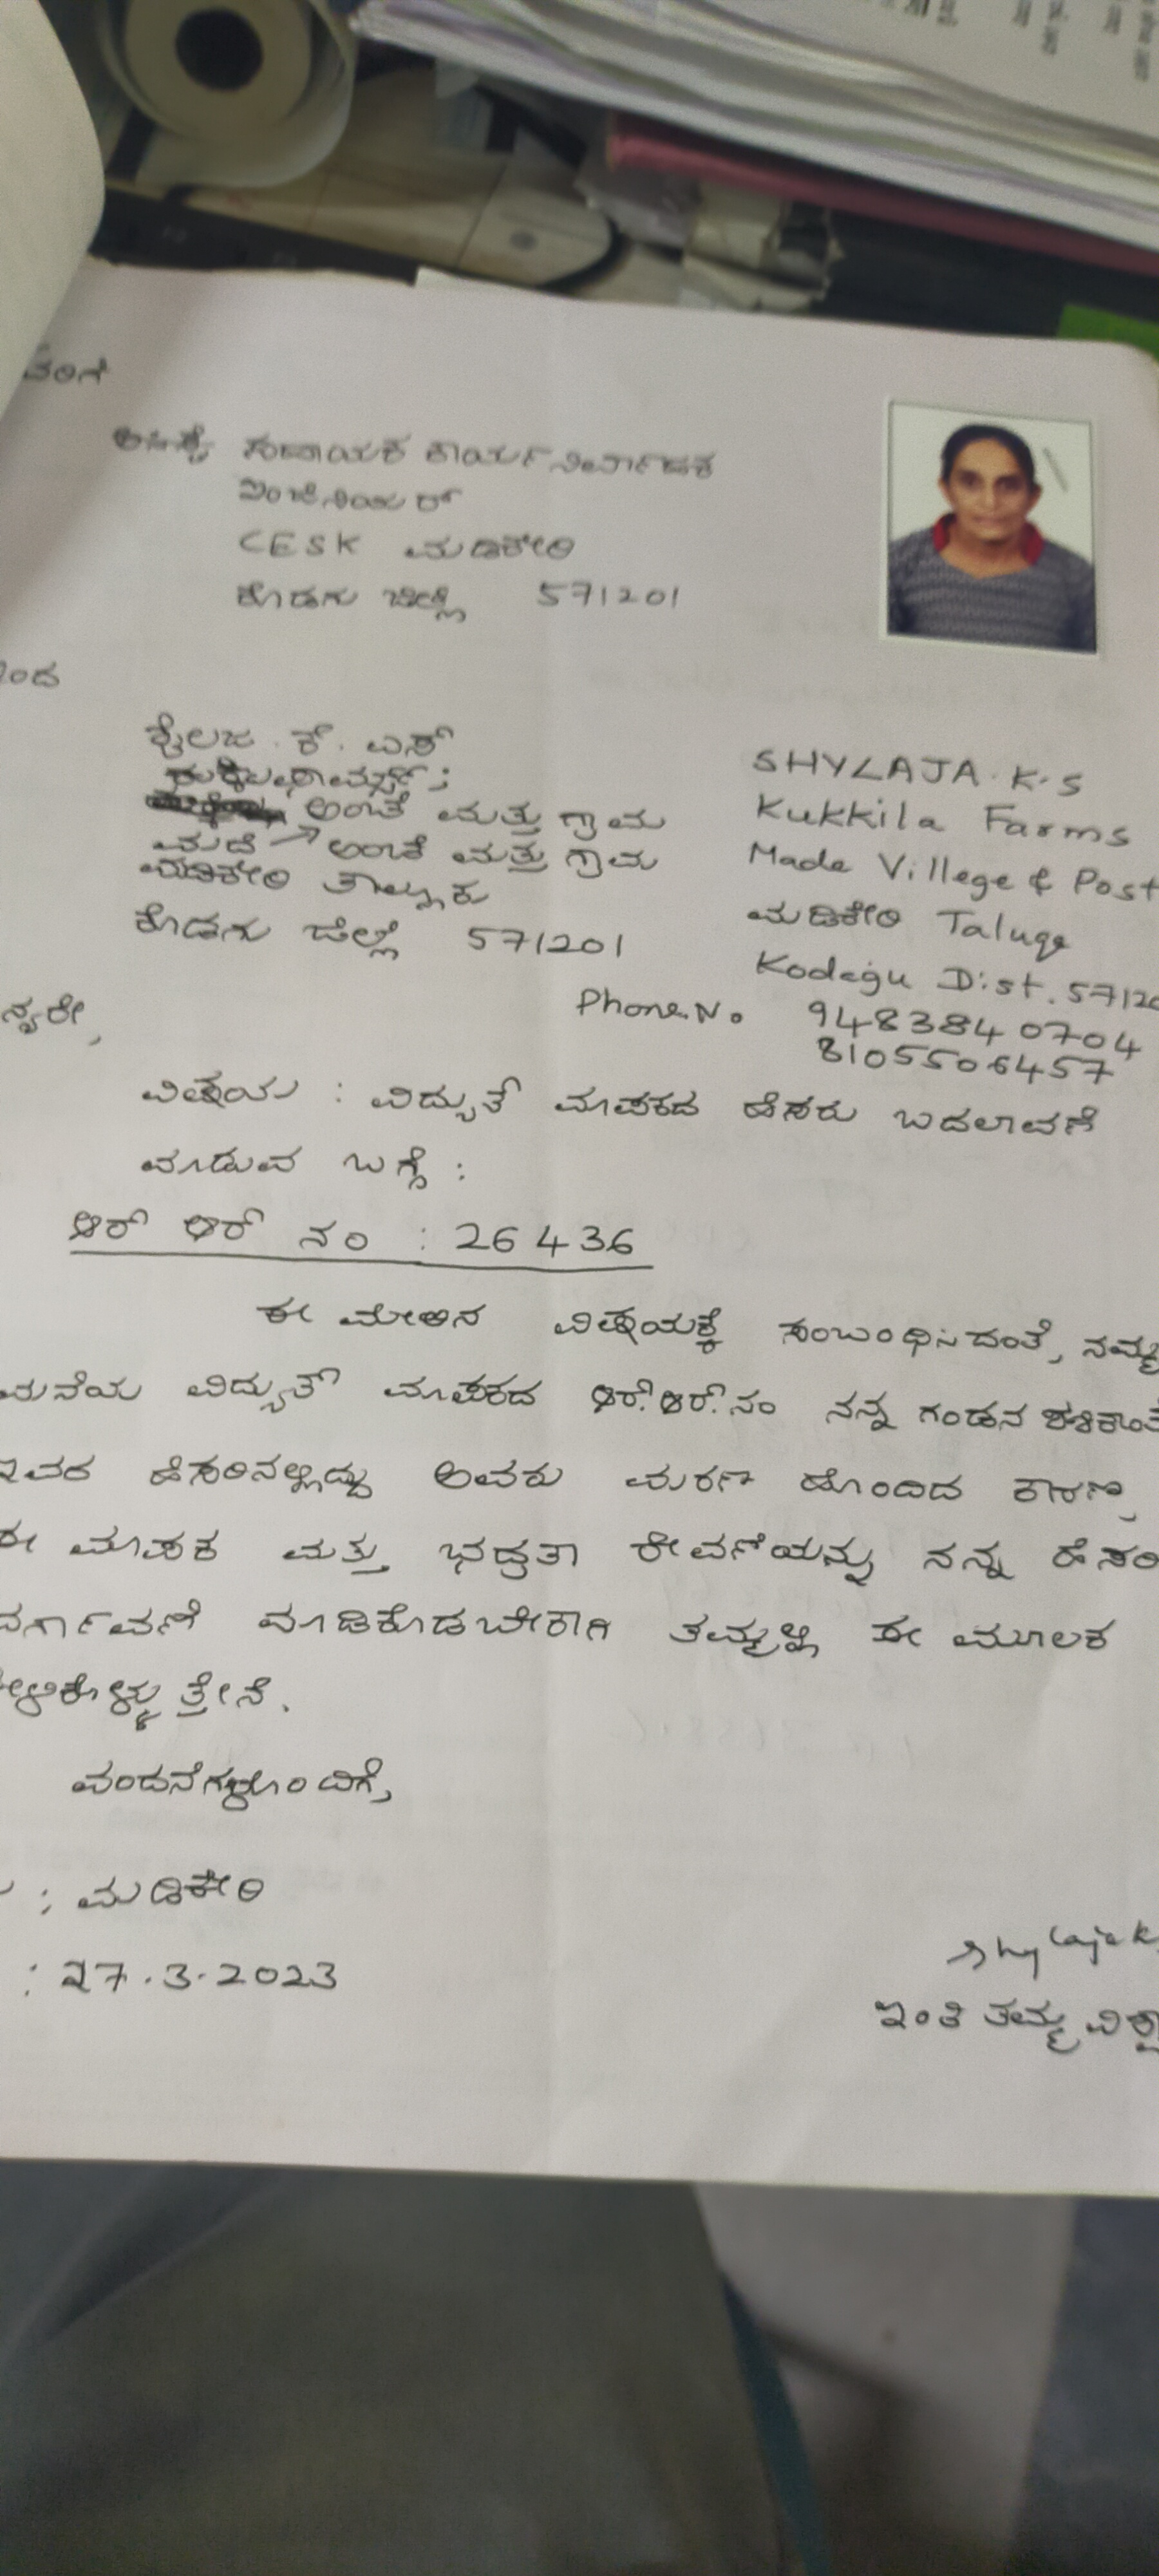 ವರಿಗೆ
ಸಹಾಯಕ ಕಾರ್ಯನಿರ್ವಾಹಕ
ಇಂಜಿನಿಯರ್
CESK ಮಡಿಕೇರಿ
ಕೊಡಗು ಜಿಲ್ಲೆ 571201
ಇಂದ
ಶೈಲಜ . ಕೆ . ಎಸ್
ಅಂಚೆ ಮತ್ತು ಗ್ರಾಮ
ಮದೆ → ಅಂಚೆ ಮತ್ತು ಗ್ರಾಮ
ಮಡಿಕೇರಿ ತಾಲ್ಲೂಕು
ಕೊಡಗು ಜಿಲ್ಲೆ 571201
SHYLAJA . K . S
Kukkila Farms
Made Villege & Post
ಮಡಿಕೇರಿ Taluqe
Kodagu Dist. 57120
Phone. No 9483840704
8105506457
ನ್ಯರೇ,
ವಿಷಯ : ವಿದ್ಯುತ್ ಮಾಪಕದ ಹೆಸರು ಬದಲಾವಣೆ
ಮಾಡುವ ಬಗ್ಗೆ :
ಆರ್ ಆರ್ ನಂ : 26436
ಈ ಮೇಲಿನ ವಿಷಯಕ್ಕೆ ಸಂಬಂಧಿಸಿದಂತೆ, ನಮ್ಮ
ಮನೆಯ ವಿದ್ಯುತ್ ಮಾಪಕದ ಆರ್.ಆರ್.ನಂ ನನ್ನ ಗಂಡನ ಶಶಿಕಾಂತ
ಇವರ ಹೆಸರಿನಲ್ಲಿದ್ದು ಅವರು ಮರಣ ಹೊಂದಿದ ಕಾರಣ,
ಈ ಮಾಪಕ ಮತ್ತು ಭದ್ರತಾ ಠೇವಣಿಯನ್ನು ನನ್ನ ಹೆಸರಿ
ವರ್ಗಾವಣೆ ಮಾಡಿಕೊಡಬೇಕಾಗಿ ತಮ್ಮಲ್ಲಿ ಈ ಮೂಲಕ
ೇಳಿಕೊಳ್ಳುತ್ತೇನೆ.
ವಂದನೆಗಳೊಂದಿಗೆ,
: ಮಡಿಕೇರಿ
: 27.3.2023
Shylaja K
ಇಂತಿ ತಮ್ಮ ವಿಶ್ವಾ